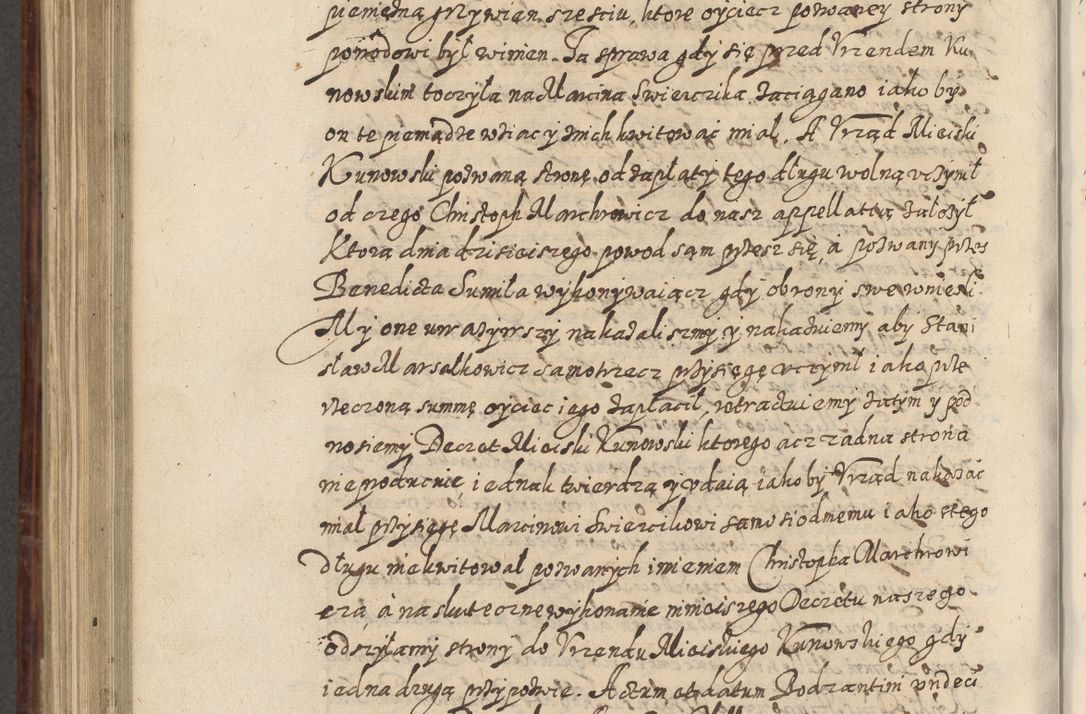 pieniędzą grzywien szesciu, ktore oyciecz pozwaney strony
powodowi był winien. Ta sprawa gdy się przed Vrzendem Ku
nowskim toczyła na Marcina Swierczika zaciągano iakoby
on te pieniądze wziac y z nich kwitowac miał. A Vrząd Mieiski
Kunowski pozwaną stronę od zapłaty tego długu wolną vczynił
od czego Christoph Marchrowicz do nasz appellatią załozył
Ktora dnia dzisieiszego powod sam przesz się, a pozwany przes
Benedicta Sumiła wykonywaiącz gdy obrony swe wniesli.
My one uwazywszy nakazaliszmy y nakazuiemy aby Stani
sław Marsalkowicz samotrzecz przysięgę vczynił iako prze
rzeczoną summę oyciec iego zapłacił, vtradzuiemy zatym y pod
nosiemy Decret Mieiski Kunowski ktorego acz zadna strona
nie producuię iednak twierdzą y vdaią iakoby Vrząd nakazac
miał przysięgę Marcinowi Swiercikowi samosiodmemu iako stego
długu niekwitował pozwanych imieniem Christopha Marchrowi
cza, a na skuteczne wykonanie ninieiszego Decretu naszego
odsyłamy strony do Vrzendu Mieiskiego Kunowskiego gdy
iedna drugą przypozwie. Actum et datum Bodzantini vndeci